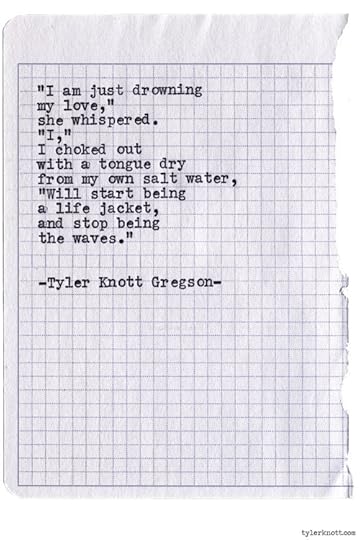 "I am just drowning
my love,"
she whispered.
"I,"
I choked out
with a tongue dry
from my own salt water,
"Will start being
a life jacket,
and stop being
the waves."
-Tyler Knott Gregson-
tylerknott.com